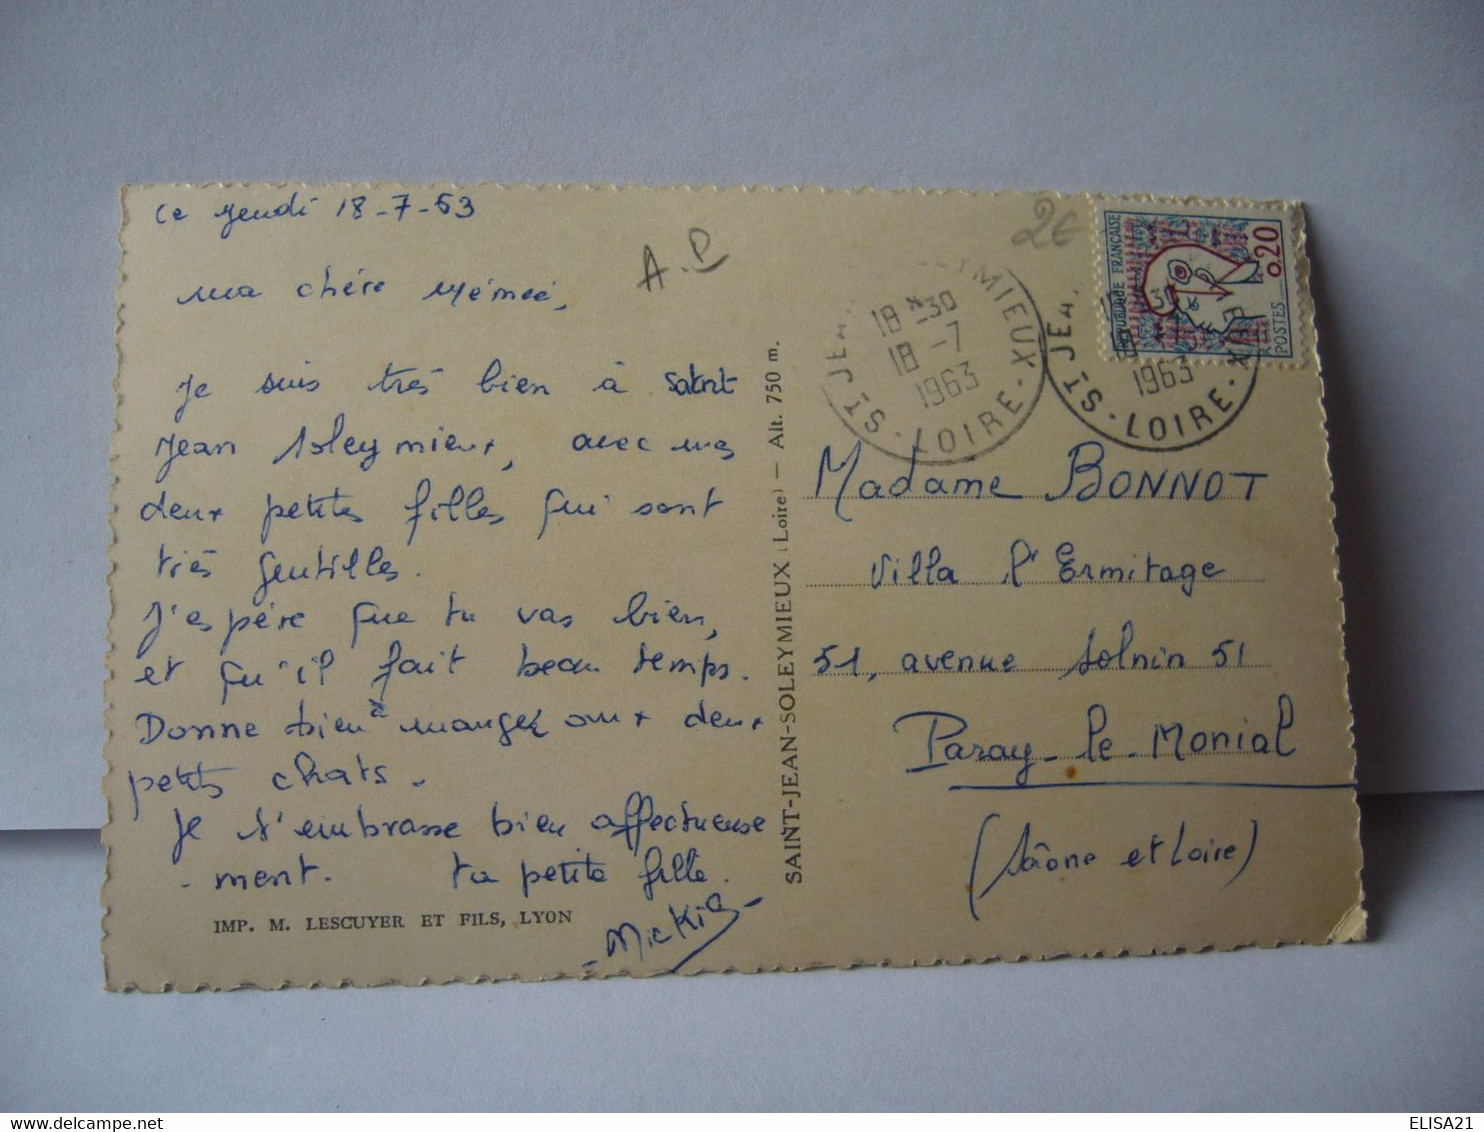 Ce jeudi 18-7-63
ma chère Mémée,
A.P
2€
Je suis très bien à saint
Jean Soleymieux, avec mes
deux petites filles qui sont
très gentilles.
J'espère que tu vas bien,
et qu'il fait beau temps.
Donne bien à manger aux deux
petits chats.
Je t'embrasse bien affectueuse
-ment. ta petite fille.
-Mickie-
IMP. M. LESCUYER ET FILS, LYON
SAINT-JEAN-SOLEYMIEUX (Loire) — Alt. 750 m.
ST JEAN SOLEYMIEUX
18 H 30
18 -7
1963
LOIRE
ST JEAN
1963
LOIRE
RÉPUBLIQUE FRANÇAISE
0,20
POSTES
Madame BONNOT
Villa l'Ermitage
51, avenue Solnin 51
Paray-le-Monial
(Saône et Loire)
ELISA21